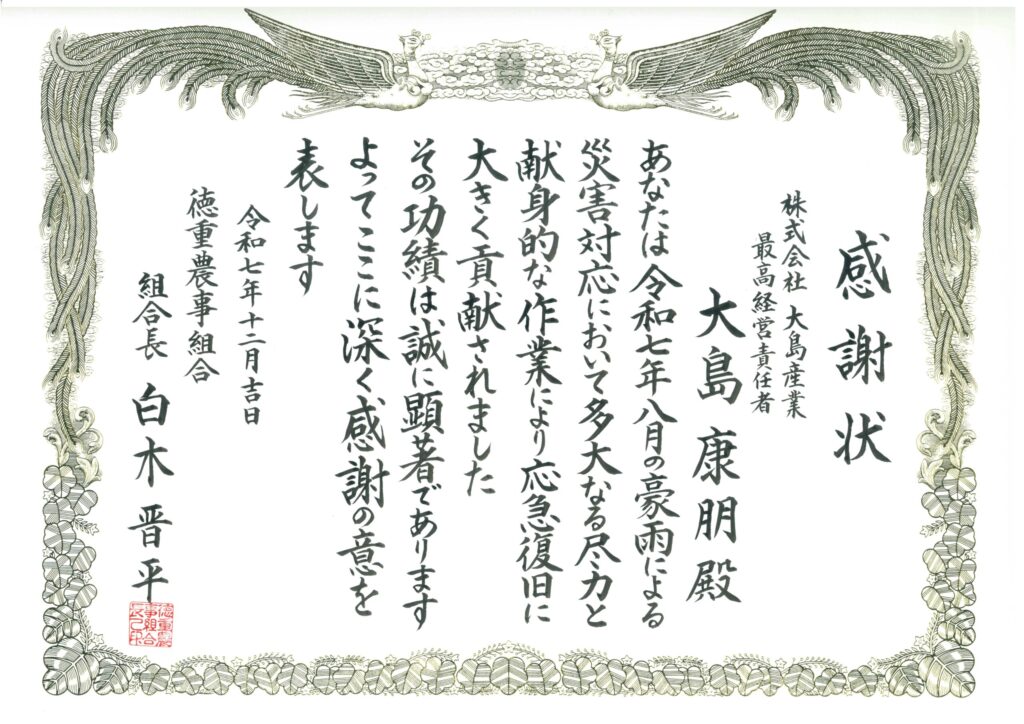 感謝状
株式会社 大島産業
最高経営責任者
大島康朋殿
あなたは令和七年八月の豪雨による
災害対応において多大なる尽力と
献身的な作業により応急復旧に
大きく貢献されました
その功績は誠に顕著であります
よってここに深く感謝の意を
表します
令和七年十二月吉日
徳重農事組合
組合長 白木晋平
徳重農
事組合
長之印